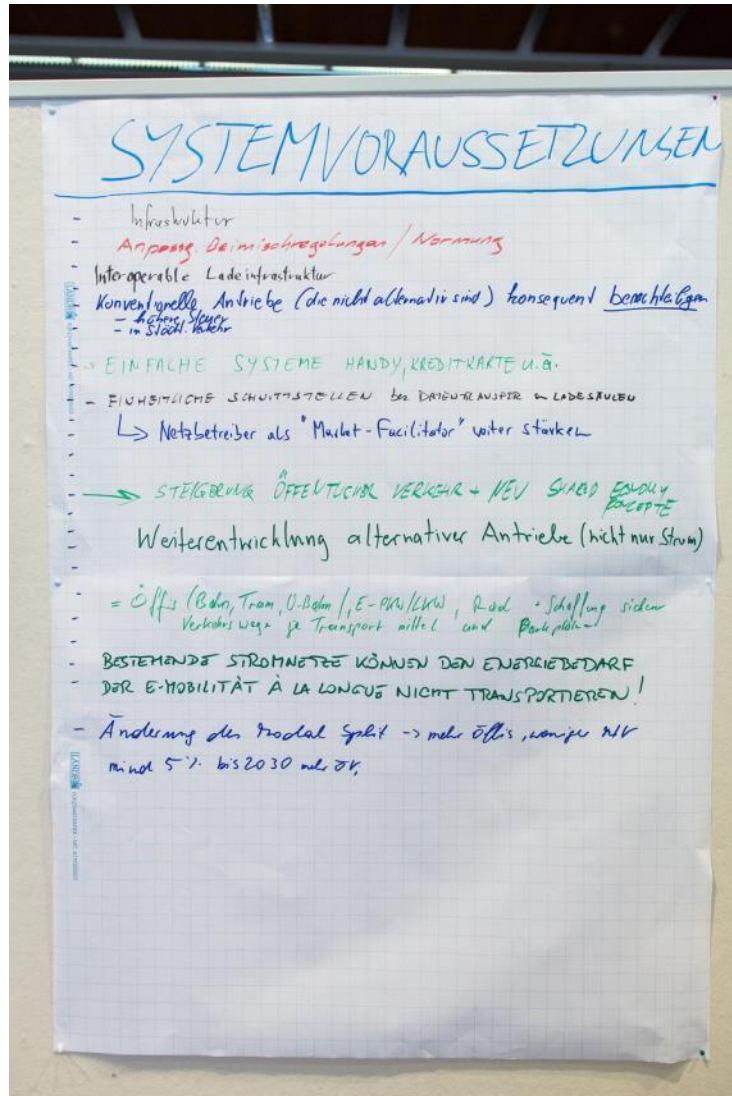 SYSTEMVORAUSSETZUNGEN
- Infrastruktur
- Anpassg. Beimischregelungen / Normung
Interoperable Ladeinfrastruktur
Konventionelle Antriebe (die nicht alternativ sind) konsequent benachteiligen
- höhere Steuer
- im städt. Verkehr
→ EINFACHE SYSTEME HANDY, KREDITKARTE u.ä.
- EINHEITLICHE SCHNITTSTELLEN bei DATENTRANSFER LADESÄULEN
↳ Netzbetreiber als "Market-Facilitator" weiter stärken
→ STEIGERUNG ÖFFENTLICHER VERKEHR + NEU SHARED ECONOMY
KONZEPTE
Weiterentwicklung alternativer Antriebe (nicht nur Strom)
= Öffis (Bahn, Tram, U-Bahn), E-PKW/LKW, Rad + Schaffung sicherer
Verkehrswege je Transportmittel und
BESTEHENDE STROMNETZE KÖNNEN DEN ENERGIEBEDARF
DER E-MOBILITÄT À LA LONGUE NICHT TRANSPORTIEREN!
- Änderung des Modal Split -> mehr Öffis, weniger MIV
mind 5% bis 2030 mehr ÖV,
LANDRÉ
LANDRÉ